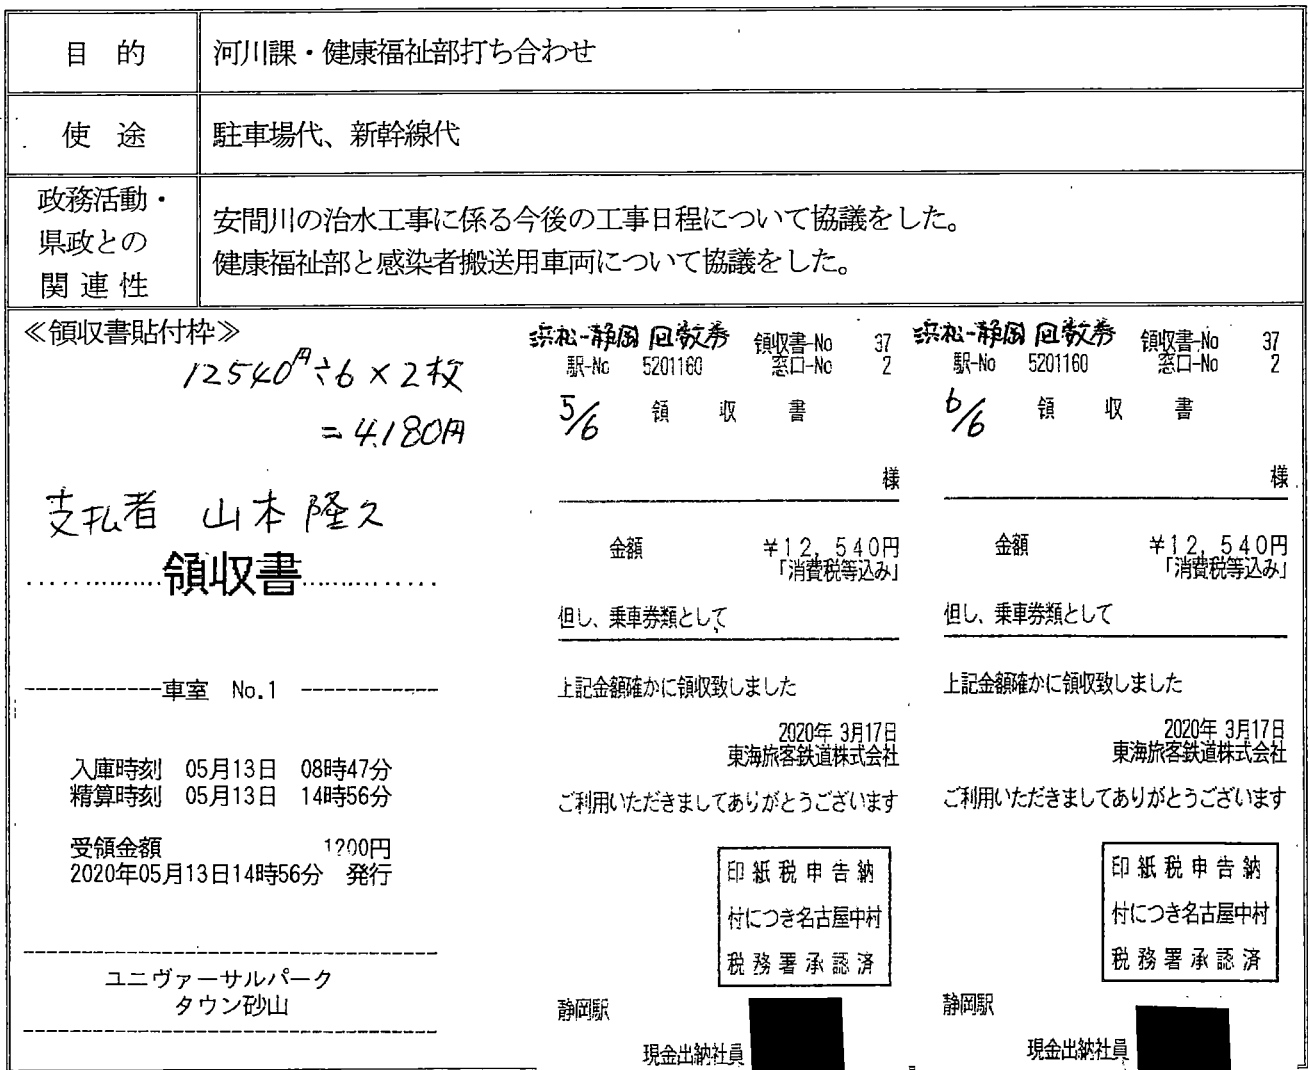 目 的
河川課・健康福祉部打ち合わせ
使 途
駐車場代、新幹線代
政務活動・
県政との
関連性
安間川の治水工事に係る今後の工事日程について協議をした。
健康福祉部と感染者搬送用車両について協議をした。
≪領収書貼付枠≫
12540円÷6×2枚
=4,180円
支払者 山本隆久
領収書
車室 No.1
入庫時刻 05月13日 08時47分
精算時刻 05月13日 14時56分
受領金額 1200円
2020年05月13日14時56分 発行
ユニヴァーサルパーク
タウン砂山
浜松-静岡 回数券
領収書-No 37
駅-No 5201160 窓口-No 2
5/6 領 収 書
様
金額 ¥12,540円
「消費税等込み」
但し、乗車券類として
上記金額確かに領収致しました
2020年 3月17日
東海旅客鉄道株式会社
ご利用いただきましてありがとうございます
印紙税申告納
付につき名古屋中村
税務署承認済
静岡駅
現金出納社員
浜松-静岡 回数券
領収書-No 37
駅-No 5201160 窓口-No 2
6/6 領 収 書
様
金額 ¥12,540円
「消費税等込み」
但し、乗車券類として
上記金額確かに領収致しました
2020年 3月17日
東海旅客鉄道株式会社
ご利用いただきましてありがとうございます
印紙税申告納
付につき名古屋中村
税務署承認済
静岡駅
現金出納社員